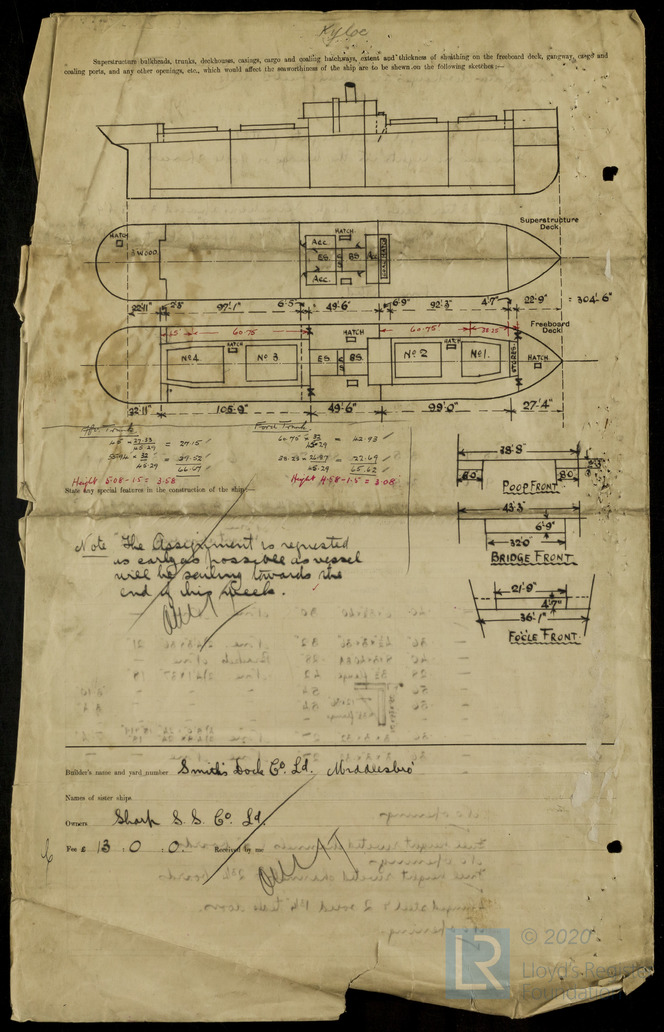 Kyloe
Superstructure bulkheads, trunks, deckhouses, casings, cargo and coaling hatchways, extent and thickness of sheathing on the freeboard deck, gangway, cargo and
coaling ports, and any other openings, etc., which would affect the seaworthiness of the ship are to be shewn on the following sketches:—
Superstructure
Deck
HATCH
WOOD
Acc.
HATCH
E.S.
B.S.
Acc.
22'11"
2'5
97'.1"
6'.5"
49'6"
6'9"
92'.3"
4'7"
22'-9"
= 304'-6"
Freeboard
Deck
45'
60.75
60.75'
38.25
No4.
HATCH
No 3
HATCH
E.S
B.S.
No 2
HATCH
No1.
STORES
HATCH
22'.11"
105'-9"
49'6"
99'.0"
27'-4"
Aft Trunk
45 × 27.33 / 45.29 = 27.15
32 / 45.29
66.67
Ford Trunk
60.75 × 32 / 45.29 = 42.93
38.25 × / 45.29 = 22.69
65.62
Height 5.08-1.5 = 3.58
Height 4.58-1.5 = 3.08
State any special features in the construction of the ship:—
38'.8"
8'.0"
8'.0"
POOP FRONT
43'.3"
6'9"
32'0"
BRIDGE FRONT
21'-9"
4'.7"
36'-1"
FOCLE FRONT
Note The Assignment is requested
as early as possible as vessel
will be sailing towards the
end of this week.
Builder's name and yard number Smith's Dock Co. Ld. Middlesbro'
Names of sister ships
Owners Sharp S. S. Co. Ld.
Fee £ 13 . 0 . 0. Received by me
LR
© 2020
Lloyd's Register
Foundation